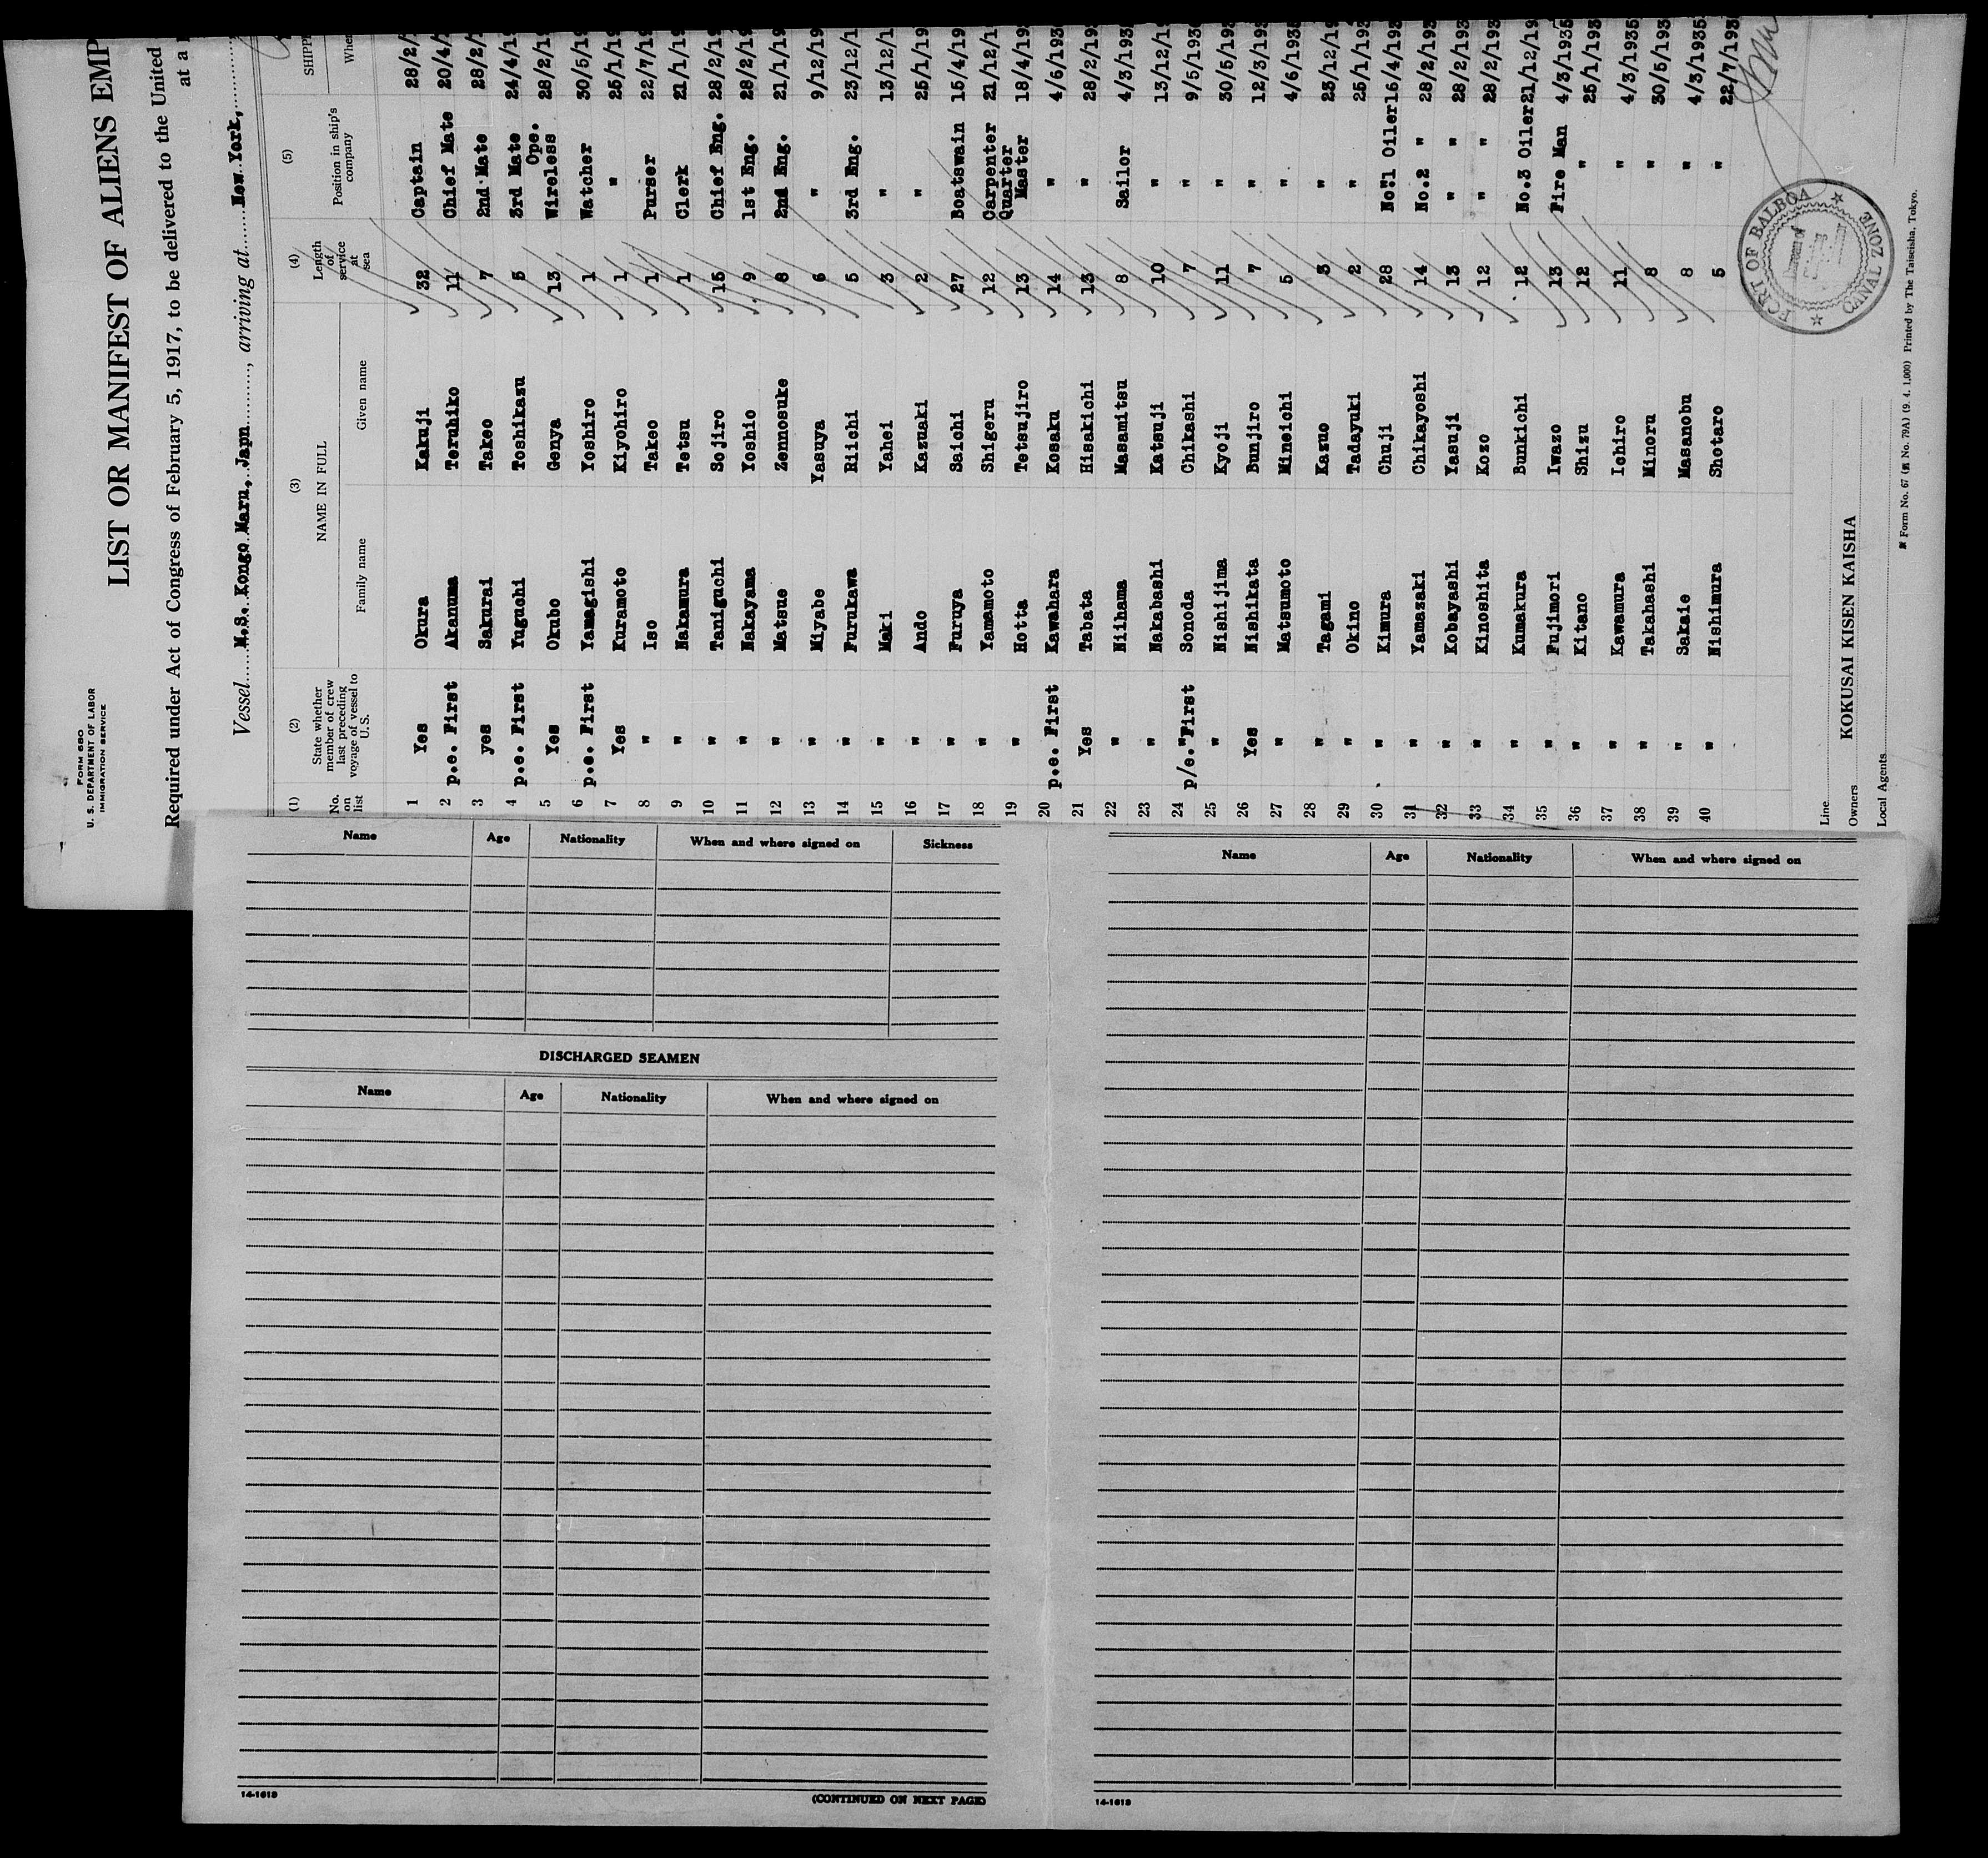 FORM 680
U. S. DEPARTMENT OF LABOR
IMMIGRATION SERVICE
LIST OR MANIFEST OF ALIENS EMP
Required under Act of Congress of February 5, 1917, to be delivered to the United
at a
Vessel M.S. Kongo Maru, Japn, arriving at New York,
(1) (2) (3) (4) (5)
No. on list State whether member of crew last preceding voyage of vessel to U. S. NAME IN FULL Length of service at sea Position in ship's company SHIPP
Family name Given name Whe
1 Yes Okura Kakuji 32 Captain 28/2/
2 p.e. First Akanuma Teruhiko 11 Chief Mate 20/4/
3 yes Sakurai Takeo 7 2nd Mate 28/2/
4 p.e. First Yuguchi Toshikazu 5 3rd Mate 24/4/19
5 Yes Okubo Genya 13 Wireless Ope. 28/2/19
6 p.e. First Yamagishi Yoshiro 1 Watcher 30/5/19
7 Yes Kuramoto Kiyohiro 1 " 25/1/19
8 " Iso Takeo 1 Purser 22/7/19
9 " Nakamura Tetsu 1 Clerk 21/1/19
10 " Taniguchi Sojiro 15 Chief Eng. 28/2/19
11 " Nakayama Yoshio 9 1st Eng. 28/2/19
12 " Matsue Zennosuke 8 2nd Eng. 21/1/19
13 " Miyabe Yasuya 6 " 9/12/19
14 " Furukawa Riichi 5 3rd Eng. 23/12/1
15 " Maki Yahei 3 " 13/12/1
16 " Ando Kazuaki 2 " 25/1/19
17 " Furuya Saichi 27 Boatswain 15/4/19
18 " Yamamoto Shigeru 12 Carpenter 21/12/1
19 " Hotta Tetsujiro 13 Quarter Master 18/4/19
20 p.e. First Kawahara Kosaku 14 " 4/6/193
21 Yes Tabata Hisakichi 13 " 28/2/19
22 " Niihama Masamitsu 8 Sailor 4/3/193
23 " Nakabashi Katsuji 10 " 13/12/1
24 p/e."First Sonoda Chikashi 7 " 9/5/193
25 " Nishijima Kyoji 11 " 30/5/19
26 Yes Nishikata Bunjiro 7 " 12/3/19
27 " Matsumoto Mineichi 5 " 4/6/193
28 " Tagami Kazuo 3 " 23/12/19
29 " Okino Tadayuki 2 " 25/1/193
30 " Kimura Chuji 28 No"1 Oiler 15/4/193
31 " Yamazaki Chikayoshi 14 No.2 " 28/2/193
32 " Kobayashi Yasuji 13 " " 28/2/193
33 " Kinoshita Kozo 12 " " 28/2/193
34 " Kumakura Bunkichi 12 No.3 Oiler 21/12/19
35 " Fujimori Iwazo 13 Fire Man 4/3/1935
36 " Kitano Shizu 12 " 25/1/193
37 " Kawamura Ichiro 11 " 4/3/1935
38 " Takahashi Minoru 8 " 30/5/193
39 " Sakaie Masanobu 8 " 4/3/1935
40 " Nishimura Shotaro 5 " 22/7/193
PORT OF BALBOA
CANAL ZONE
Line
Owners KOKUSAI KISEN KAISHA
Local Agents
Form No. 67 ( No. 79A) (9. 4. 1,000) Printed by The Taiseisha, Tokyo.
Name Age Nationality When and where signed on Sickness
DISCHARGED SEAMEN
Name Age Nationality When and where signed on
14-1613
(CONTINUED ON NEXT PAGE)
Name Age Nationality When and where signed on
14-1613